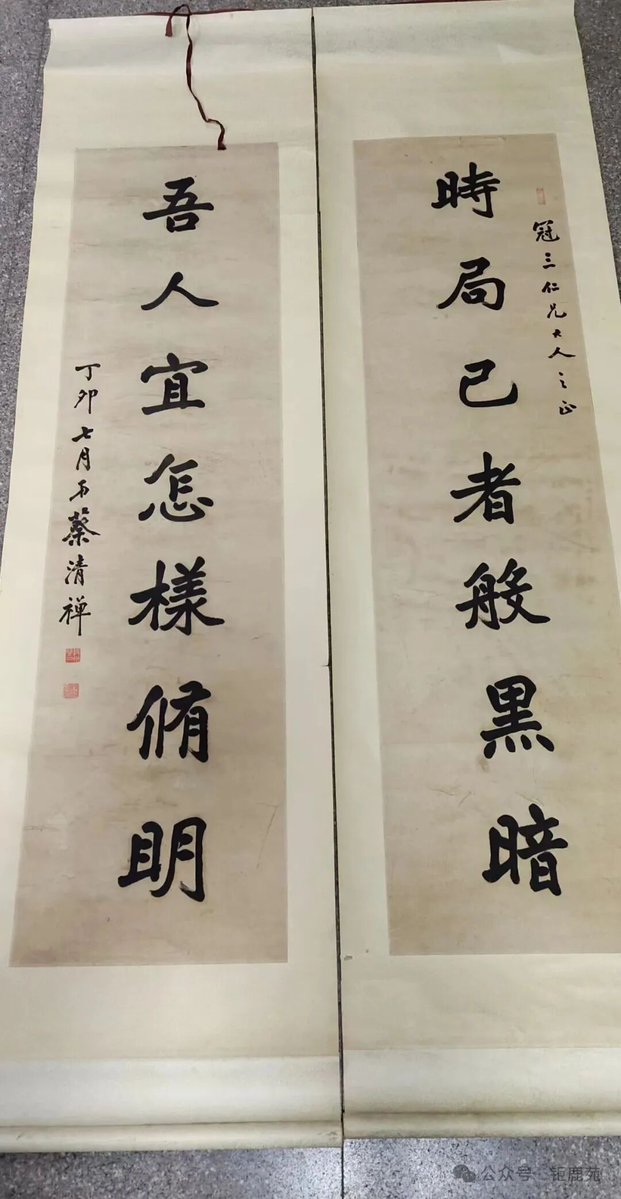 冠三仁兄大人之正
時局已者般黑暗
吾人宜怎樣脩明
丁卯七月蔡清禅
公众号 钜鹿苑